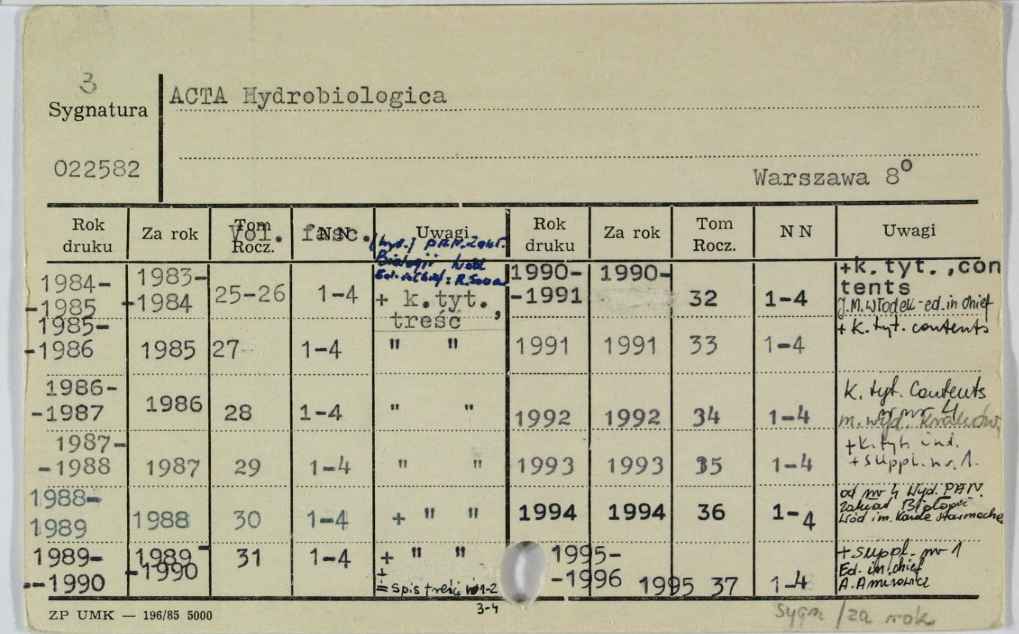 3
Sygnatura
022582
ACTA Hydrobiologica
Warszawa 8°
Rok druku Za rok Tom Rocz. N N Uwagi Rok druku Za rok Tom Rocz. N N Uwagi
Vol. fasc.
(wyd.) PAN. Zakł.
Biologii Wód
Ed. in Chief: R. Sowa
1984-
-1985 1983-
-1984 25-26 1-4 + k.tyt.,
treść
1985-
-1986 1985 27 1-4 " "
1986-
-1987 1986 28 1-4 " "
1987-
-1988 1987 29 1-4 " "
1988-
1989 1988 30 1-4 + " "
1989-
-1990 1989-
-1990 31 1-4 + " "
+
= spis treści 1-2
3-4
1990-
-1991 1990- 32 1-4 +k.tyt.,con
tents
J.M. Włodek-ed. in chief
1991 1991 33 1-4 + k. tyt. contents
1992 1992 34 1-4 k. tyt. Contents
nr 4
m. wyd. Kraków,
1993 1993 35 1-4 +k. tyt. ind.
+ suppl. nr. 1.
1994 1994 36 1-4 od nr 4 Wyd. PAN.
Zakład Biologii
Wód im. Karola Starmacha
1995-
-1996 1995 37 1-4 + suppl. nr 1
Ed. im. chief
ZP UMK — 196/85 5000
Sygn /za rok